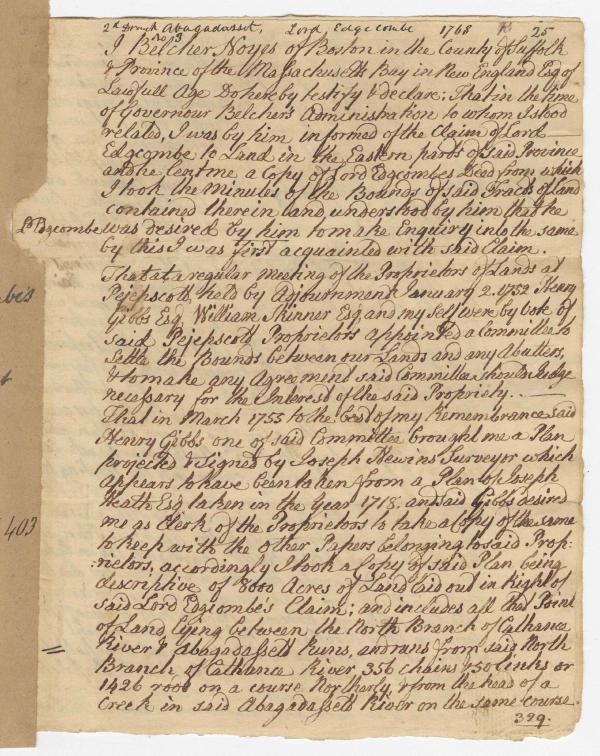 2d Draught Abagadasset, Lord Edgcombe 1768 25
No 3
I Belcher Noyes of Boston in the County of Suffolk
& Province of the Massachusetts Bay in New England Esq of
Lawfull Age Do hereby testify & declare; That in the time
of Governour Belcher's Administration to whom I stood
related, I was by him informed of the Claim of Lord
Edgcombe to Land in the Eastern parts of said Province
and he lent me a Copy of Lord Edgcombes Deed from which
I took the Minutes of the Bounds of said Tract of Land
contained therein and understood by him that he
Ld Edgcombe was desired by him to make Enquiry into the same
by this I was first acquainted with said Claim.
That at a regular meeting of the Proprietors of Lands at
Pejepscott, held by Adjournment January 2. 1752 Henry
Gibbs Esq William Skinner Esq and my self were by Vote of
said Pejepscott Proprietors appointed a Committee to
Settle the Bounds between our Lands and any Abutters,
& to make any Agreement said Committee should Judge
necessary for the Interest of the said Propriety. —
That in March 1753 to the best of my Remembrance said
Henry Gibbs one of said Committee brought me a Plan
projected & Signed by Joseph Hewins Surveyer which
appears to have been taken from a Plan of Joseph
Heath Esq taken in the Year 1718. and said Gibbs desired
me as Clerk of the Proprietors to take a Copy of the same
to keep with the Other Papers belonging to said Prop:
:rietors, accordingly I took a Copy of said Plan being
descriptive of 8000 Acres of Land Laid out in Right of
said Lord Edgcombe's Claim; and includes all that Point
of Land lying between the North Branch of Cathance
River & Abagadassett Runs, and runs from said North
Branch of Cathance River 356 chains & 50 links or
1426 rods on a course Northerly, & from the head of a
Creek in said Abagadassett River on the same course
399.
be's
403